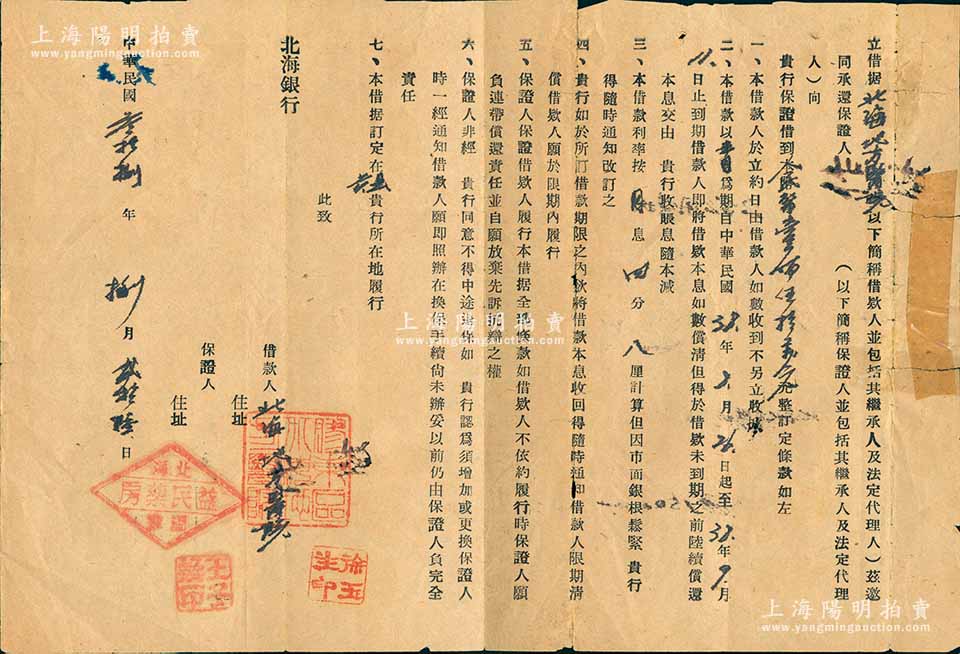 立借据北海地方醫院(以下簡稱借欵人並包括其繼承人及法定代理人)茲邀
同承還保證人(以下簡稱保證人並包括其繼承人及法定代理
人)向
貴行保證借到本幣壹佰伍拾萬元元整訂定條款如左
一、本借款人於立約日由借款人如數收到不另立收據
二、本借款以半月爲期自中華民國38年8月26日起至38年9月
11日止到期借款人即將借欵本息如數償清但得於借欵未到期之前陸續償還
本息交由 貴行收賬息隨本減
三、本借款利率按月息四分八厘計算但因市面銀根鬆緊 貴行
得隨時通知改訂之
四、貴行如於所訂借款期限之內欲將借款本息收回得隨時通知借款人限期清
償借欵人願於限期內履行
五、保證人保證借欵人履行本借据全部條款如借欵人不依約履行時保證人願
負連帶償還責任並自願放棄先訴抗辯之權
六、保證人非經 貴行同意不得中途退保如 貴行認爲須增加或更換保證人
時一經通知借款人願即照辦在換保手續尙未辦妥以前仍由保證人負完全
責任
七、本借据訂定在 貴行所在地履行
此致
北海銀行
借款人 北海地方醫院
住址
保證人
住址
中華民國 叁拾捌 年 捌 月 貳拾陸 日
北海
益民藥房
徐玉生印
上海陽明拍賣
yangmingauction.com
上海陽明拍賣
yangmingauction.com
上海陽明拍賣
www.yangmingauction.com